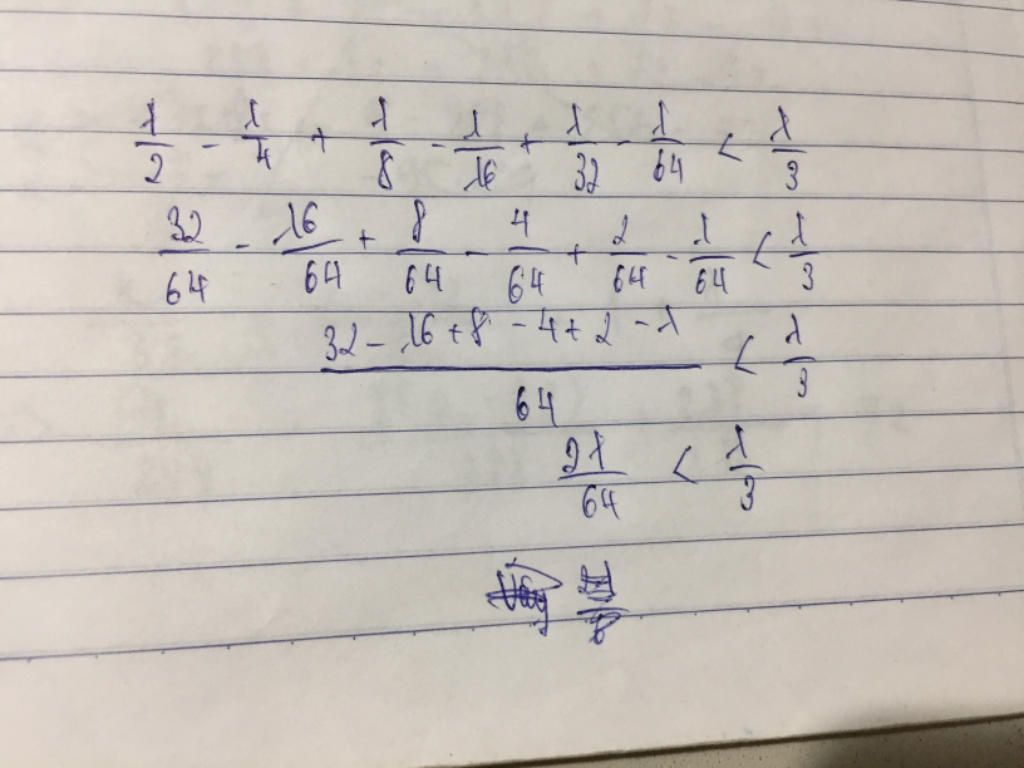 1/2 - 1/4 + 1/8 - 1/16 + 1/32 - 1/64 < 1/3
32/64 - 16/64 + 8/64 - 4/64 + 2/64 - 1/64 < 1/3
(32 - 16 + 8 - 4 + 2 - 1)/64 < 1/3
21/64 < 1/3
Vậy